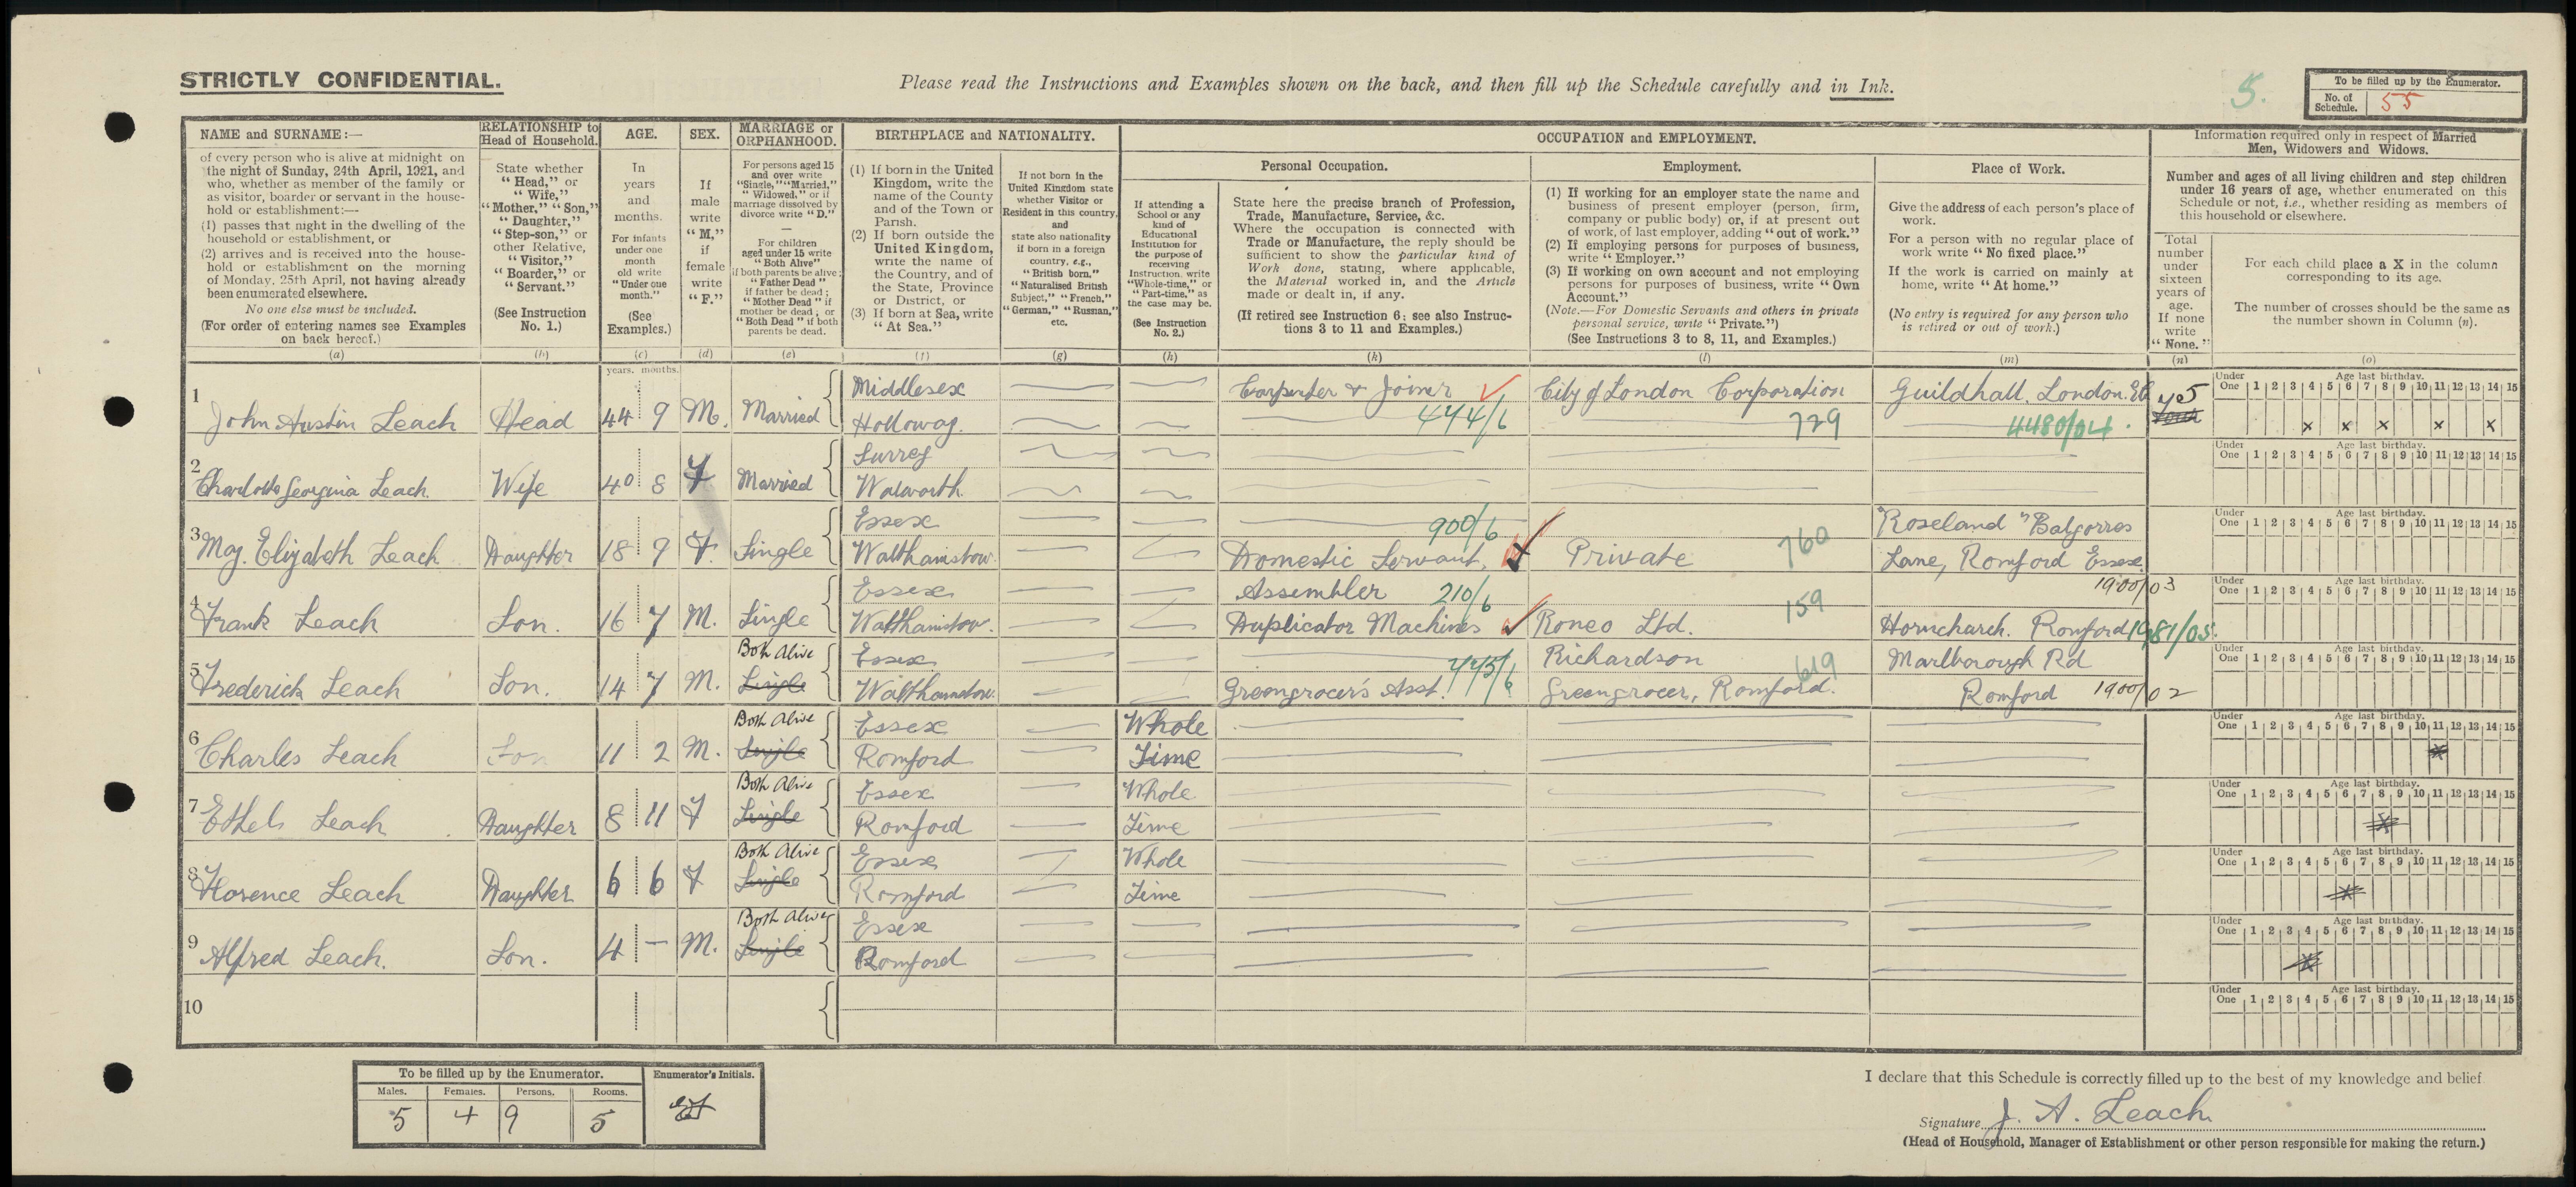 STRICTLY CONFIDENTIAL.
Please read the Instructions and Examples shown on the back, and then fill up the Schedule carefully and in Ink.
5.
To be filled up by the Enumerator.
No. of Schedule. 55
NAME and SURNAME:—
of every person who is alive at midnight on
the night of Sunday, 24th April, 1921, and
who, whether as member of the family or
as visitor, boarder or servant in the house-
hold or establishment:—
(1) passes that night in the dwelling of the
household or establishment, or
(2) arrives and is received into the house-
hold or establishment on the morning
of Monday, 25th April, not having already
been enumerated elsewhere.
No one else must be included.
(For order of entering names see Examples
on back hereof.)
(a)
RELATIONSHIP to
Head of Household.
State whether
"Head," or
"Wife,"
"Mother," "Son,"
"Daughter,"
"Step-son," or
other Relative,
"Visitor,"
"Boarder," or
"Servant."
(See Instruction
No. 1.)
(b)
AGE.
In
years
and
months.
For infants
under one
month
old write
"Under one
month."
(See
Examples.)
(c)
SEX.
If
male
write
"M,"
if
female
write
"F."
(d)
MARRIAGE or
ORPHANHOOD.
For persons aged 15
and over write
"Single," "Married,"
"Widowed," or if
marriage dissolved by
divorce write "D."
—
For children
aged under 15 write
"Both Alive"
if both parents be alive;
"Father Dead"
if father be dead;
"Mother Dead" if
mother be dead; or
"Both Dead" if both
parents be dead.
(e)
BIRTHPLACE and NATIONALITY.
(1) If born in the United
Kingdom, write the
name of the County
and of the Town or
Parish.
(2) If born outside the
United Kingdom,
write the name of
the Country, and of
the State, Province
or District, or
(3) If born at Sea, write
"At Sea."
(f)
If not born in the
United Kingdom state
whether Visitor or
Resident in this country,
and
state also nationality
if born in a foreign
country, e.g.,
"British born,"
"Naturalised British
Subject," "French,"
"German," "Russian,"
etc.
(g)
OCCUPATION and EMPLOYMENT.
If attending a
School or any
kind of
Educational
Institution for
the purpose of
receiving
Instruction, write
"Whole-time," or
"Part-time," as
the case may be.
(See Instruction
No. 2.)
(h)
Personal Occupation.
State here the precise branch of Profession,
Trade, Manufacture, Service, &c.
Where the occupation is connected with
Trade or Manufacture, the reply should be
sufficient to show the particular kind of
Work done, stating, where applicable,
the Material worked in, and the Article
made or dealt in, if any.
(If retired see Instruction 6; see also Instruc-
tions 3 to 11 and Examples.)
(k)
Employment.
(1) If working for an employer state the name and
business of present employer (person, firm,
company or public body) or, if at present out
of work, of last employer, adding "out of work."
(2) If employing persons for purposes of business,
write "Employer."
(3) If working on own account and not employing
persons for purposes of business, write "Own
Account."
(Note.—For Domestic Servants and others in private
personal service, write "Private.")
(See Instructions 3 to 8, 11, and Examples.)
(l)
Place of Work.
Give the address of each person's place of
work.
For a person with no regular place of
work write "No fixed place."
If the work is carried on mainly at
home, write "At home."
(No entry is required for any person who
is retired or out of work.)
(m)
Information required only in respect of Married
Men, Widowers and Widows.
Number and ages of all living children and step children
under 16 years of age, whether enumerated on this
Schedule or not, i.e., whether residing as members of
this household or elsewhere.
Total
number
under
sixteen
years of
age.
If none
write
"None."
(n)
For each child place a X in the column
corresponding to its age.
The number of crosses should be the same as
the number shown in Column (n).
(o)
years. months.
Under One Age last birthday. 1 2 3 4 5 6 7 8 9 10 11 12 13 14 15
1 John Austin Leach Head 44 9 M. Married Middlesex Holloway. Carpenter & Joiner 444/6 City of London Corporation 729 Guildhall. London. E.C. 4480/04 5 x x x x x
Under One Age last birthday. 1 2 3 4 5 6 7 8 9 10 11 12 13 14 15
2 Charlotte Georgina Leach Wife 40 8 F Married Surrey Walworth
Under One Age last birthday. 1 2 3 4 5 6 7 8 9 10 11 12 13 14 15
3 May. Elizabeth Leach Daughter 18 9 F. Single Essex Walthamstow 900/6 Domestic Servant. Private 760 "Roseland" Balgorres Lane, Romford Essex 1900/03
Under One Age last birthday. 1 2 3 4 5 6 7 8 9 10 11 12 13 14 15
4 Frank Leach Son. 16 7 M. Single Essex Walthamstow. Assembler 210/6 Duplicator Machines Roneo Ltd. 159 Hornchurch. Romford 1981/05
Under One Age last birthday. 1 2 3 4 5 6 7 8 9 10 11 12 13 14 15
5 Frederick Leach Son. 14 7 M. Both Alive Single Essex Walthamstow. Greengrocer's Asst. 775/6 Richardson Greengrocer, Romford. 619 Marlborough Rd Romford 1900/02
Under One Age last birthday. 1 2 3 4 5 6 7 8 9 10 11 12 13 14 15
6 Charles Leach Son 11 2 M. Both Alive Single Essex Romford Whole Time
Under One Age last birthday. 1 2 3 4 5 6 7 8 9 10 11 12 13 14 15
7 Ethel Leach Daughter 8 11 F Both Alive Single Essex Romford Whole Time
Under One Age last birthday. 1 2 3 4 5 6 7 8 9 10 11 12 13 14 15
8 Florence Leach Daughter 6 6 F Both Alive Single Essex Romford Whole Time
Under One Age last birthday. 1 2 3 4 5 6 7 8 9 10 11 12 13 14 15
9 Alfred Leach. Son. 4 – M. Both Alive Single Essex Romford
Under One Age last birthday. 1 2 3 4 5 6 7 8 9 10 11 12 13 14 15
10
To be filled up by the Enumerator.
Males. Females. Persons. Rooms.
5 4 9 5
Enumerator's Initials.
I declare that this Schedule is correctly filled up to the best of my knowledge and belief
Signature J. A. Leach
(Head of Household, Manager of Establishment or other person responsible for making the return.)